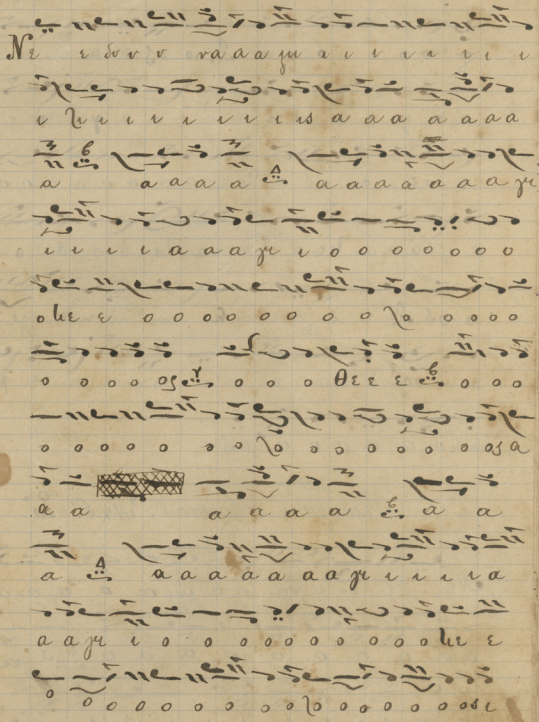 Νε ε δυ υ υ να α α μι ι ι ι ι ι ι ι
ι χι ι ι ι ι ι ι ι ις α α α α α α α
α α α α α α α α α α α α γι
ι ι ι ι α α α γι ι ο ο ο ο ο ο ο
ο κε ε ο ο ο ο ο ο ο χο ο ο ο ο
ο ο ο ο ος ο ο ο θε ε ε ε ο ο ο
ο ο ο ο ο ο χο ο ο ο ο ο ος α
α α α α α α α α
α α α α α α α α γι ι ι ι ι α
α α γι ι ο ο ο ο ο ο ο ο ο ο κε ε
ο ο ο ο ο ο ο ο χο ο ο ο ο ο ο